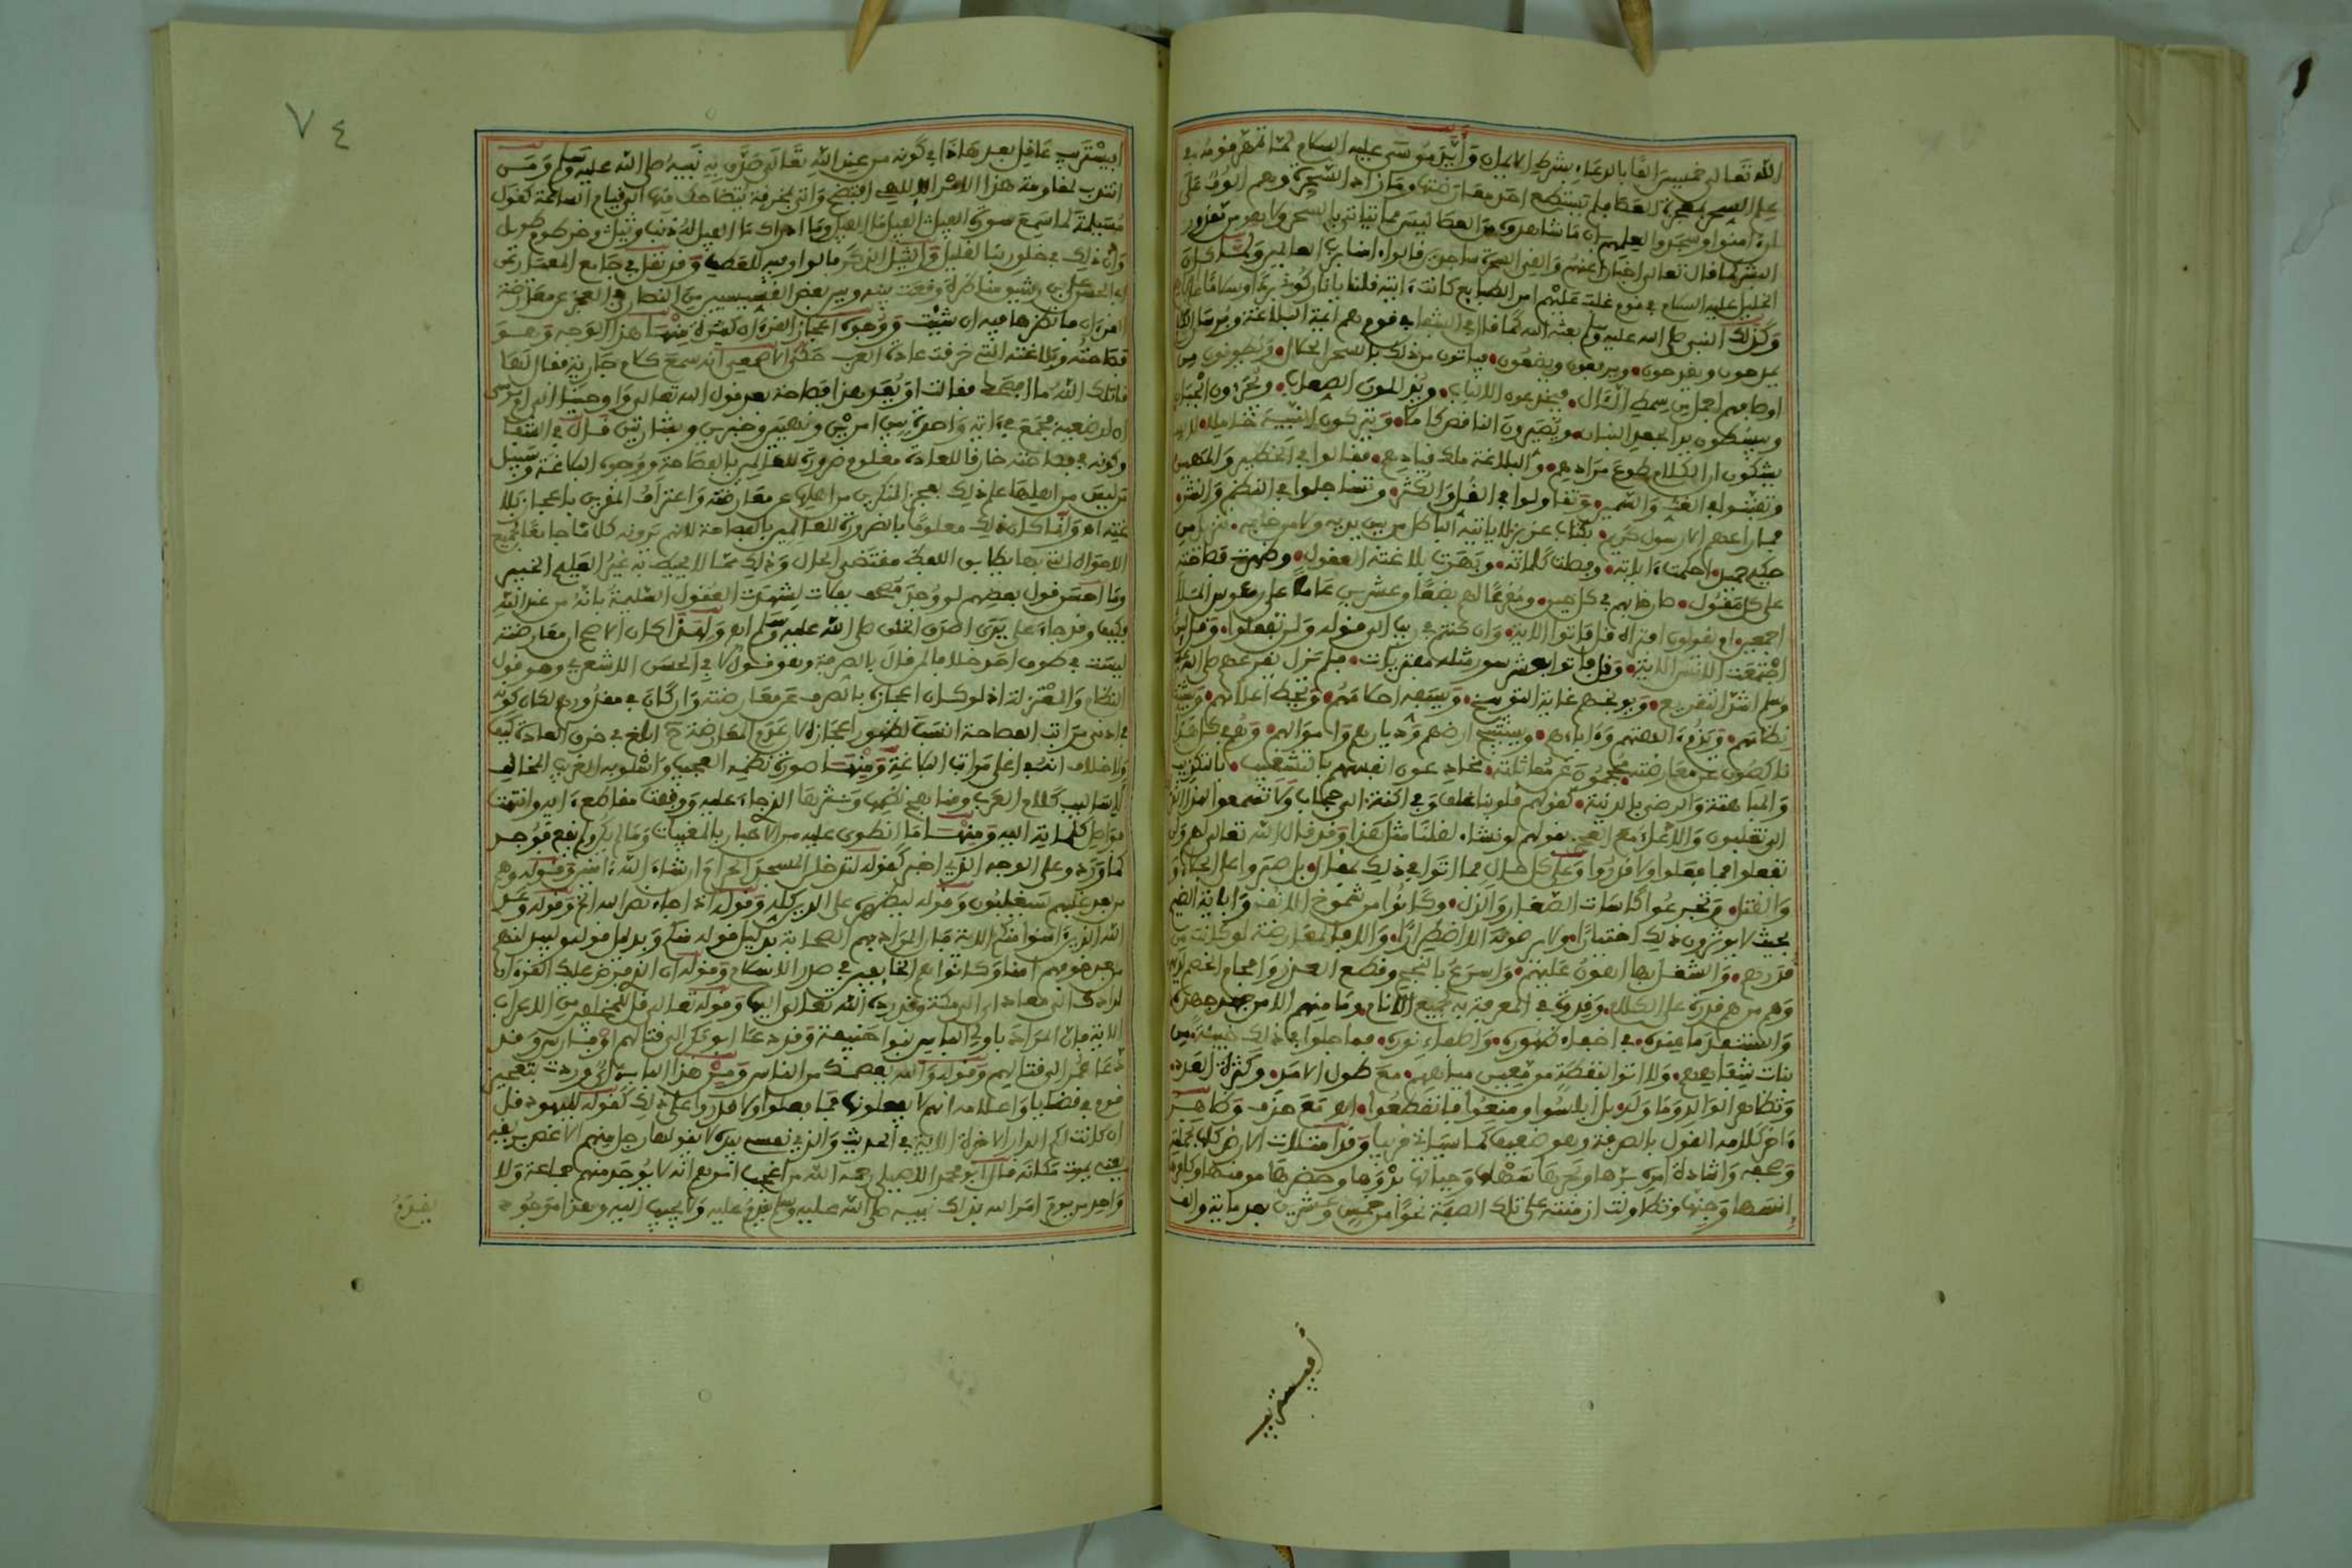 الله تعالى خمسين الفا بالدعاء بشرط الايمان وأيد موسى عليه السلام لما تمهر قومه في
علم السحر بمعجزة العصا فلم يستطع احد معارضتها وما زاد السحرة وهم الوف على
ان امنوا وسجدوا لعلمهم ان ما شاهدوه من العصا ليس مما يتاتى بالسحر ولا هو من مقدور
البشر كما قال تعالى اخبارا عنهم والقي السحرة ساجدين قالوا امنا برب العالمين ولما كان
الخليل عليه السلام في قوم غلب عليهم امر الطبايع كانت ءايته قلنا يا نار كوني بردا وسلاما على
وكذلك النبي صلى الله عليه وسلم بعثه الله كما قال في الشفا في قوم هم ايمة البلاغة وفرسان الكلا
يمدحون ويقدحون ويرفعون ويضعون فياتون من ذلك بالسحر الحلال ويطوقون من
اوصافهم اجمل من سمط اللئال فيخدعون الالباب ويذللون الصعاب
ويبسطون يد الجعد البنان ويصيرون الناقص كاملا ويتركون النبيه خاملا
يشكون ان الكلام طوع مرادهم والبلاغة ملك قيادهم فقالوا في الخطير والمهين
وتفننوا في الغث والسمين وتقاولوا في القل والكثر وتساجلوا في النظم والنثر
فما راعهم الا رسول كريم بكتاب عزيز لا ياتيه الباطل من بين يديه ولا من خلفه تنزيل من
حكيم حميد احكمت ءاياته وفصلت كلماته وبهرت بلاغته العقول وظهرت فصاحته
على كل مقول صارخا بهم في كل حين ومقرعا لهم بضعا وعشرين عاما على رءوس الملا
اجمعين ام يقولون افتراه قل فاتوا الاية وان كنتم في ريب الى قوله ولن تفعلوا وقل لئن
اجتمعت الانس الاية وقل فاتوا بعشر سور مثله مفتريات فلم يزل يقرعهم صلى الله عليه
وسلم اشد التقريع ويوبخهم غاية التوبيخ ويسفه احلامهم ويحط اعلامهم ويشتت
نظامهم ويذم ءالهتهم وءاباءهم ويستبيح ارضهم وديارهم واموالهم وهم في كل هذا
ناكصون عن معارضته محجمون عن مماثلته يخادعون انفسهم بالتشغيب بالتكذيب
والمباهتة والرضى بالدنية كقولهم قلوبنا غلف وفي اكنة الى حجاب ولا تسمعوا لهذا القر
الى تغلبون والادعاء مع العجز بقولهم لو نشاء لقلنا مثل هذا وقد قال الله تعالى لهم ولن
تفعلوا فما فعلوا ولا قدروا وعلى كل حال فما اتوا في ذلك بمقال بل صبروا على الجلاء
والقتل وتجرعوا كاسات الصغار والذل وكانوا من شموخ الانف واباية الضيم
بحيث لا يوثرون ذلك اختيارا ولا يرضونه الا اضطرارا والا فالمعارضة لو كانت من
قدرهم والشغل بها اهون عليهم واسرع بالنجح وقطع العذر وافحام الخصم لديهم
وهم من هم قدرة على الكلام وقدوة في المعرفة به لجميع الانام وما منهم الا من جهد جهده
واستنفد ما عنده في اخفاء ظهوره واطفاء نوره فما جلوا في ذلك خبيئة من
بنات شفاههم ولا اتوا بنطفة من معين مياههم مع طول الامد وكثرة العدد
وتظاهر الوالد وما ولد بل ابلسوا ومنعوا فانقطعوا اهـ مع حذف وظاهر
ءاخر كلامه القول بالصرفة وهو ضعيف كما سياتي قريبا وقد امتلات الارض كلها بحملة
وصفه واشادة امره برها وبحرها سهلها وجبالها بدوها وحضرها مومنها وكافرها
انسها وجنها وتطاولت ازمنته على تلك الصفة نحوا من خمس وعشرين بعد ماية والف
أفيستريب
٧٤
افيستريب عاقل بعد هاذا في كونه من عند الله تعالى صدق به نبيه صلى الله عليه وسلم ومن
انتدب لمقاومة هذا الامر الالهي افتضح واتى بخرفة يتضاحك منها الى قيام الساعة كقول
مسيلمة لما سمع سورة الفيل الفيل ما الفيل وما ادراك ما الفيل له ذنب وثيل وخرطوم طويل
وان ذلك في خلق ربنا لقليل
لابي الحسن علي بن رشيق مناظرة وقعت بينه وبين بعض القسيسين من النصارى في العجز عن معارضة
القرءان فانظرها فيه ان شئت ووجوه اعجاز القرءان كثيرة منها هذا الوجه وهو
فصاحته وبلاغته التي خرقت عادة العرب حكى الاصمعي انه سمع كلام جارية فقال لها
قاتلك الله ما افصحك فقالت او يعد هذا فصاحة بعد قول الله تعالى واوحينا الى ام موسى
ان ارضعيه فجمع في ءاية واحدة بين امرين ونهيين وخبرين وبشارتين قال في الشفا
وكونه في فصاحته خارقا للعادة معلوم ضرورة للعالم بالفصاحة ووجوه البلاغة وسبيل
من ليس من اهلها علم ذلك بعجز المنكرين من اهلها عن معارضته واعتراف المقرين باعجاز بلا
غته اهـ وانما كان ذلك معلوما بالضرورة للعالمين بالفصاحة لانهم يرونه كلاما جامعا لجميع
الاحوال التي بها يطابق اللفظ مقتضى الحال وذلك مما لا يحيط به غير العليم الخبير
وما احسن قول بعضهم لو وجد مصحف بفلات لشهدت العقول السليمة بانه من عند الله
فكيف وقد جاء على يدي اصدق الخلق صلى الله عليه وسلم اهـ ولهذا كان الاصح ان معارضته
ليست في طوق احد خلافا لمن قال بالصرفة وهو قول لابي الحسن الاشعري وهو قول
النظام والمعتزلة اذ لو كان اعجازه بالصرف عن معارضته وان كان في مقدورهم لكان كونه
في ادنى مراتب الفصاحة انسب لظهور اعجازه لان عدم المعارضة ح ابلغ في خرق العادة كيف
ولا خلاف انه في اعلى مراتب البلاغة ومنها صورة نظمه العجيب واسلوبه الغريب المخالف
لاساليب كلام العرب ومناهج نظمها ونثرها الذي جاء عليه ووقفت مقاطع ءايه وانتهت
فواصل كلماته اليه ومنها ما انطوى عليه من الاخبار بالمغيبات وما لم يكن ولم يقع فوجد
كما ورد وعلى الوجه الذي اخبر كقوله لتدخلن المسجد الحرام ان شاء الله ءامنين وقوله وهم
من بعد غلبهم سيغلبون وقوله ليظهره على الدين كله وقوله اذا جاء نصر الله الخ وقوله وعد
الله الذين ءامنوا منكم الاية فان المراد بهم الصحابة بدليل قوله منكم وبدليل قوله وليبدلنهم
من بعد خوفهم امنا وكانوا هم الخايفين في صدر الاسلام وقوله ان الذي فرض عليك القرءان
لرادك الى معاد اي الى مكة وقد رده الله تعالى اليها وقوله تعالى قل للمخلفين من الاعراب
الاية فان المراد باولي الباس بنوا حنيفة وقد دعا ابو بكر الى قتالهم او فارس وقد
دعا عمر الى قتالهم وقوله والله يعصمك من الناس ومن هذا الباب ءاي وردت بتعجيز
قوم في قضايا واعلامهم انهم لا يفعلونها فما فعلوا ولا قدروا على ذلك كقوله لليهود قل
ان كانت لكم الدار الاخرة الاية في الحديث والذي نفسي بيده لا يقولها رجل منهم الا غص بريقه
يعني يموت مكانه قال ابو محمد الاصيلي رحمه الله من اعجب امرهم انه لا يوجد منهم جماعة ولا
واحد من يوم امر الله بذلك نبيه صلى الله عليه وسلم يقدم عليه ولا يجيب اليه وهذا موجود
يقدم